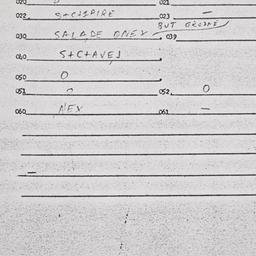 020
021
022 023 —
BUT
030 SALADE ONEX 039
040 S+C+AVES
050 O
051 O 052 O
060 NEX 061 —